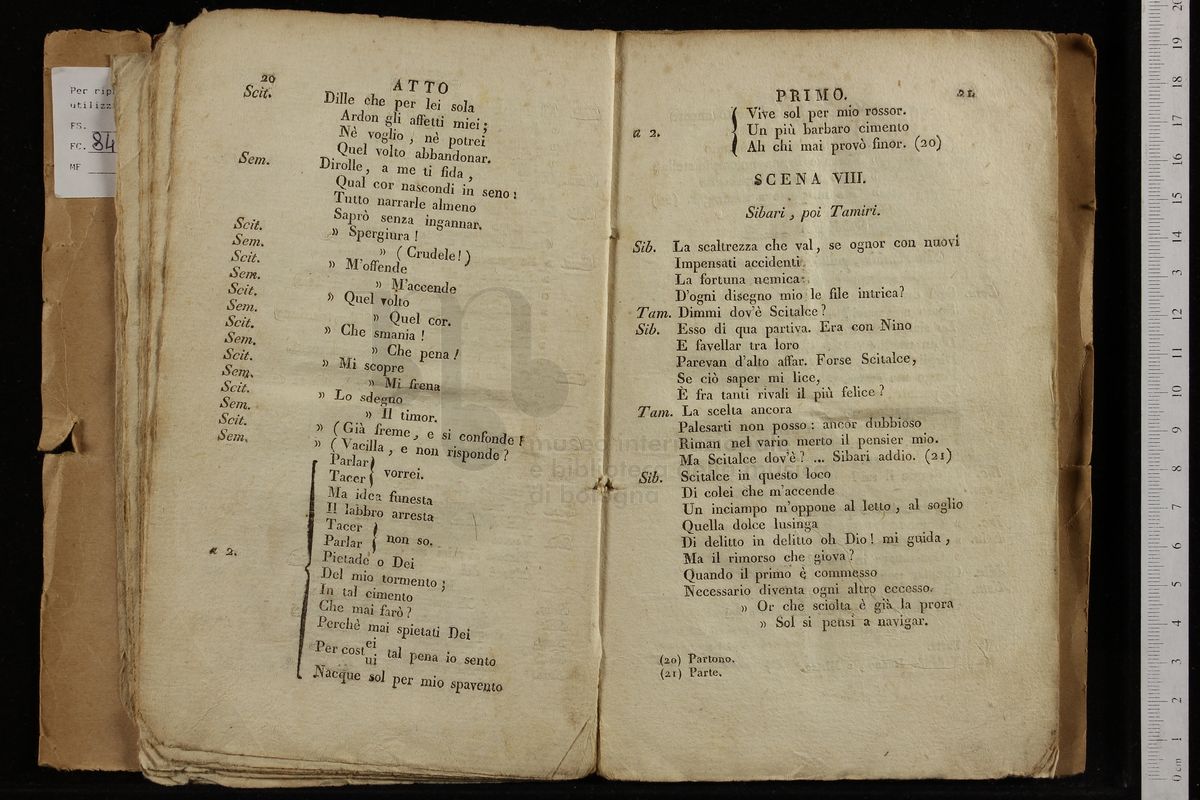 Per rip
utilizz
FS.
FC. 84
MF
20
ATTO
Scit. Dille che per lei sola
Ardon gli affetti miei;
Nè voglio, nè potrei
Quel volto abbandonar.
Sem. Dirolle, a me ti fida,
Qual cor nascondi in seno:
Tutto narrarle almeno
Saprò senza ingannar.
Scit. » Spergiura!
Sem. » (Crudele!)
Scit. » M'offende
Sem. » M'accende
Scit. » Quel volto
Sem. » Quel cor.
Scit. » Che smania!
Sem. » Che pena!
Scit. » Mi scopre
Sem. » Mi frena
Scit. » Lo sdegno
Sem. » Il timor.
Scit. » (Già freme, e si confonde!
Sem. » (Vacilla, e non risponde?
a 2.
Parlar
Tacer } vorrei.
Ma idea funesta
Il labbro arresta
Tacer
Parlar } non so.
Pietade o Dei
Del mio tormento;
In tal cimento
Che mai farò?
Perchè mai spietati Dei
Per cost ei ui tal pena io sento
Nacque sol per mio spavento
PRIMO.
21
a 2. { Vive sol per mio rossor.
Un più barbaro cimento
Ah chi mai provò finor. (20)
SCENA VIII.
Sibari, poi Tamiri.
Sib. La scaltrezza che val, se ognor con nuovi
Impensati accidenti
La fortuna nemica
D'ogni disegno mio le file intrica?
Tam. Dimmi dov'è Scitalce?
Sib. Esso di qua partiva. Era con Nino
E favellar tra loro
Parevan d'alto affar. Forse Scitalce,
Se ciò saper mi lice,
È fra tanti rivali il più felice?
Tam. La scelta ancora
Palesarti non posso: ancor dubbioso
Riman nel vario merto il pensier mio.
Ma Scitalce dov'è? ... Sibari addio. (21)
Sib. Scitalce in questo loco
Di colei che m'accende
Un inciampo m'oppone al letto, al soglio
Quella dolce lusinga
Di delitto in delitto oh Dio! mi guida,
Ma il rimorso che giova?
Quando il primo è commesso
Necessario diventa ogni altro eccesso.
» Or che sciolta è già la prora
» Sol si pensi a navigar.
(20) Partono.
(21) Parte.
museo inter
e biblioteca
di bologna